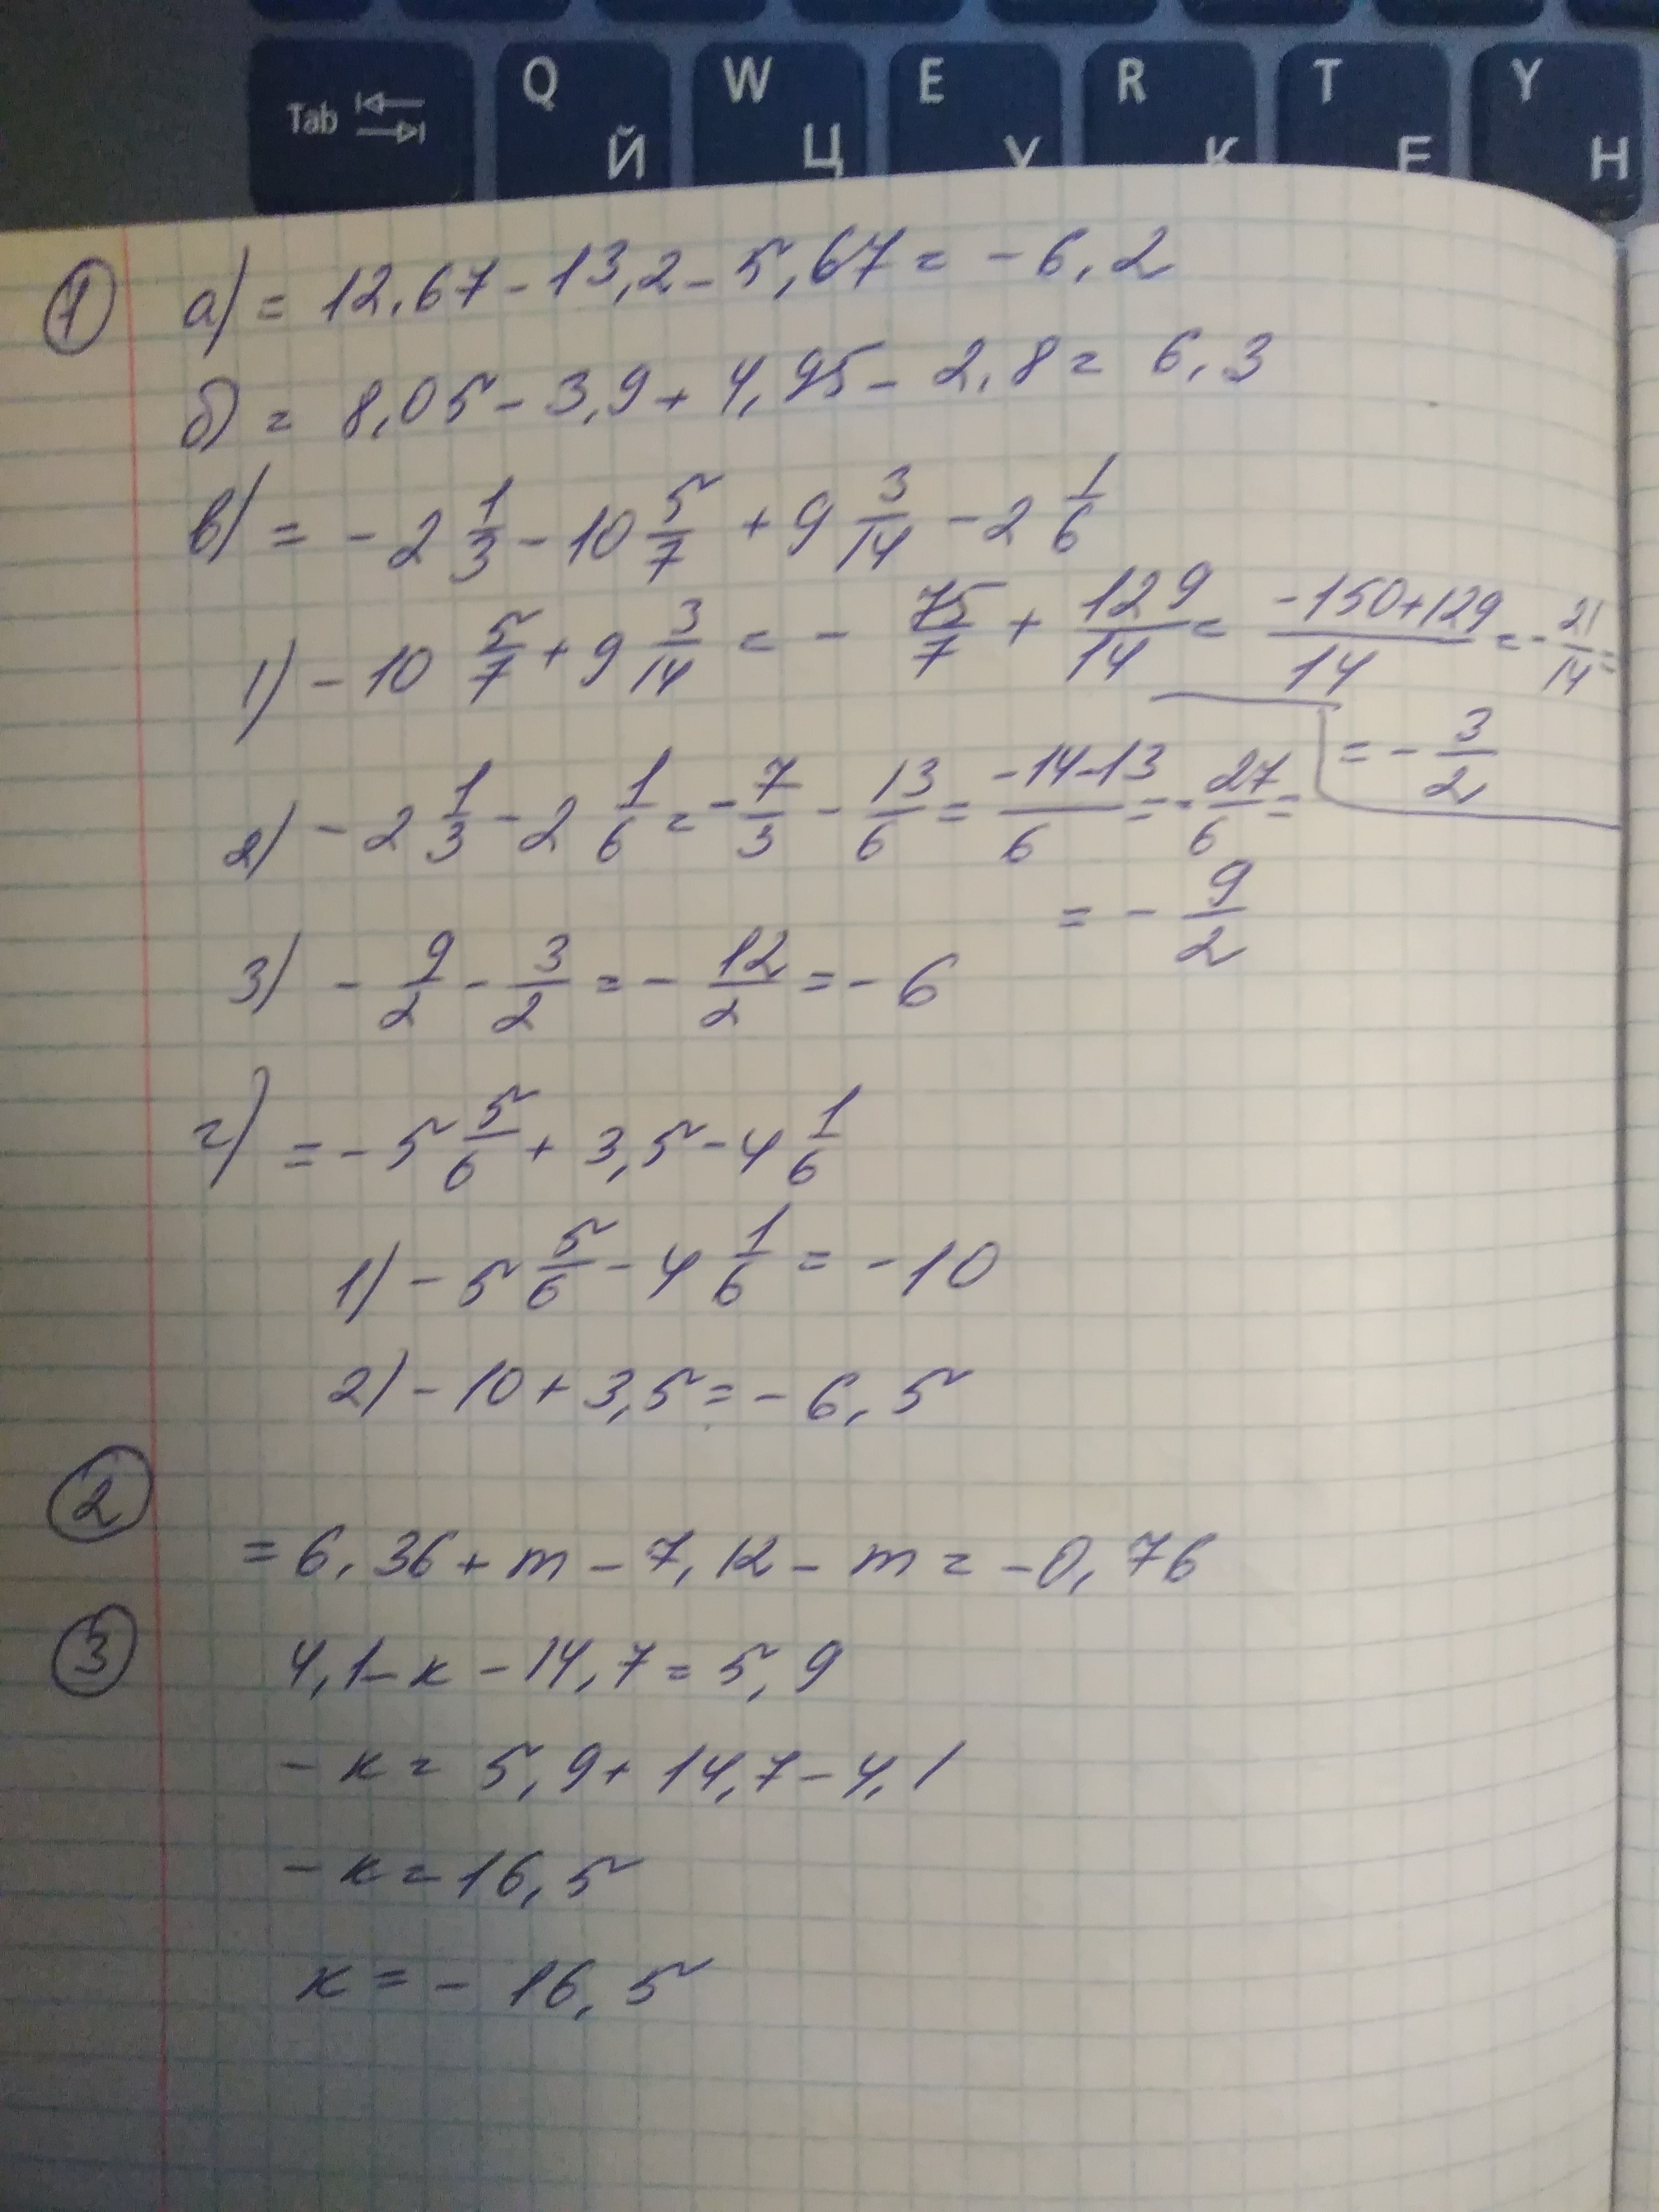 Tab
Q W E R T Y
Й Ц У К Е Н
① а) = 12,67 - 13,2 - 5,67 = - 6,2
б) = 8,05 - 3,9 + 4,95 - 2,8 = 6,3
в) = - 2 1/3 - 10 5/7 + 9 3/14 - 2 1/6
1) - 10 5/7 + 9 3/14 = - 75/7 + 129/14 = (-150+129)/14 = - 21/14 =
= - 3/2
2) - 2 1/3 - 2 1/6 = - 7/3 - 13/6 = (-14-13)/6 = - 27/6 =
= - 9/2
3) - 9/2 - 3/2 = - 12/2 = - 6
г) = - 5 5/6 + 3,5 - 4 1/6
1) - 5 5/6 - 4 1/6 = - 10
2) - 10 + 3,5 = - 6,5
②
= 6,36 + m - 7,12 - m = -0,76
③ 4,1 - к - 14,7 = 5,9
- к = 5,9 + 14,7 - 4,1
- к = 16,5
к = - 16,5